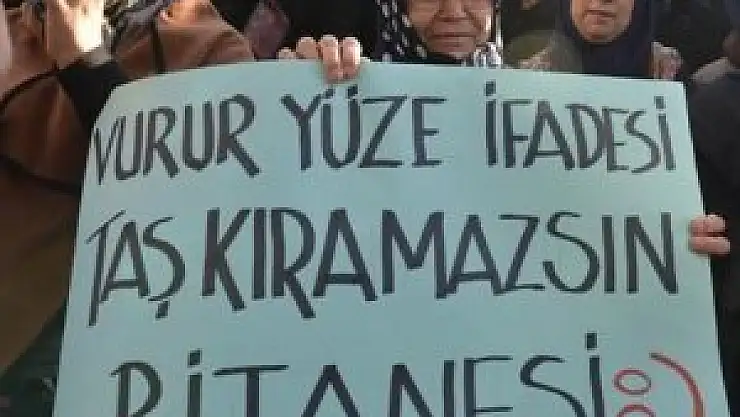 VURUR YÜZE İFADESİ
TAŞ KIRAMAZSIN
BİTANESİ :)